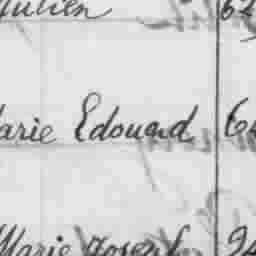 Julien 62
Marie Edouard 64
Marie Joseph 94